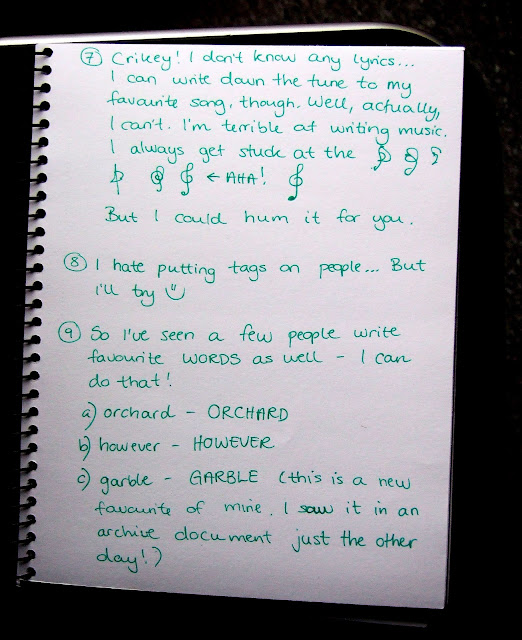 ⑦ Crikey! I don't know any lyrics...
I can write down the tune to my
favourite song, though. Well, actually,
I can't. I'm terrible at writing music.
I always get stuck at the
← AHA!
But I could hum it for you.
⑧ I hate putting tags on people... But
I'll try
⑨ So I've seen a few people write
favourite WORDS as well - I can
do that!
a) orchard - ORCHARD
b) however - HOWEVER
c) garble - GARBLE (this is a new
favourite of mine. I saw it in an
archive document just the other
day!)